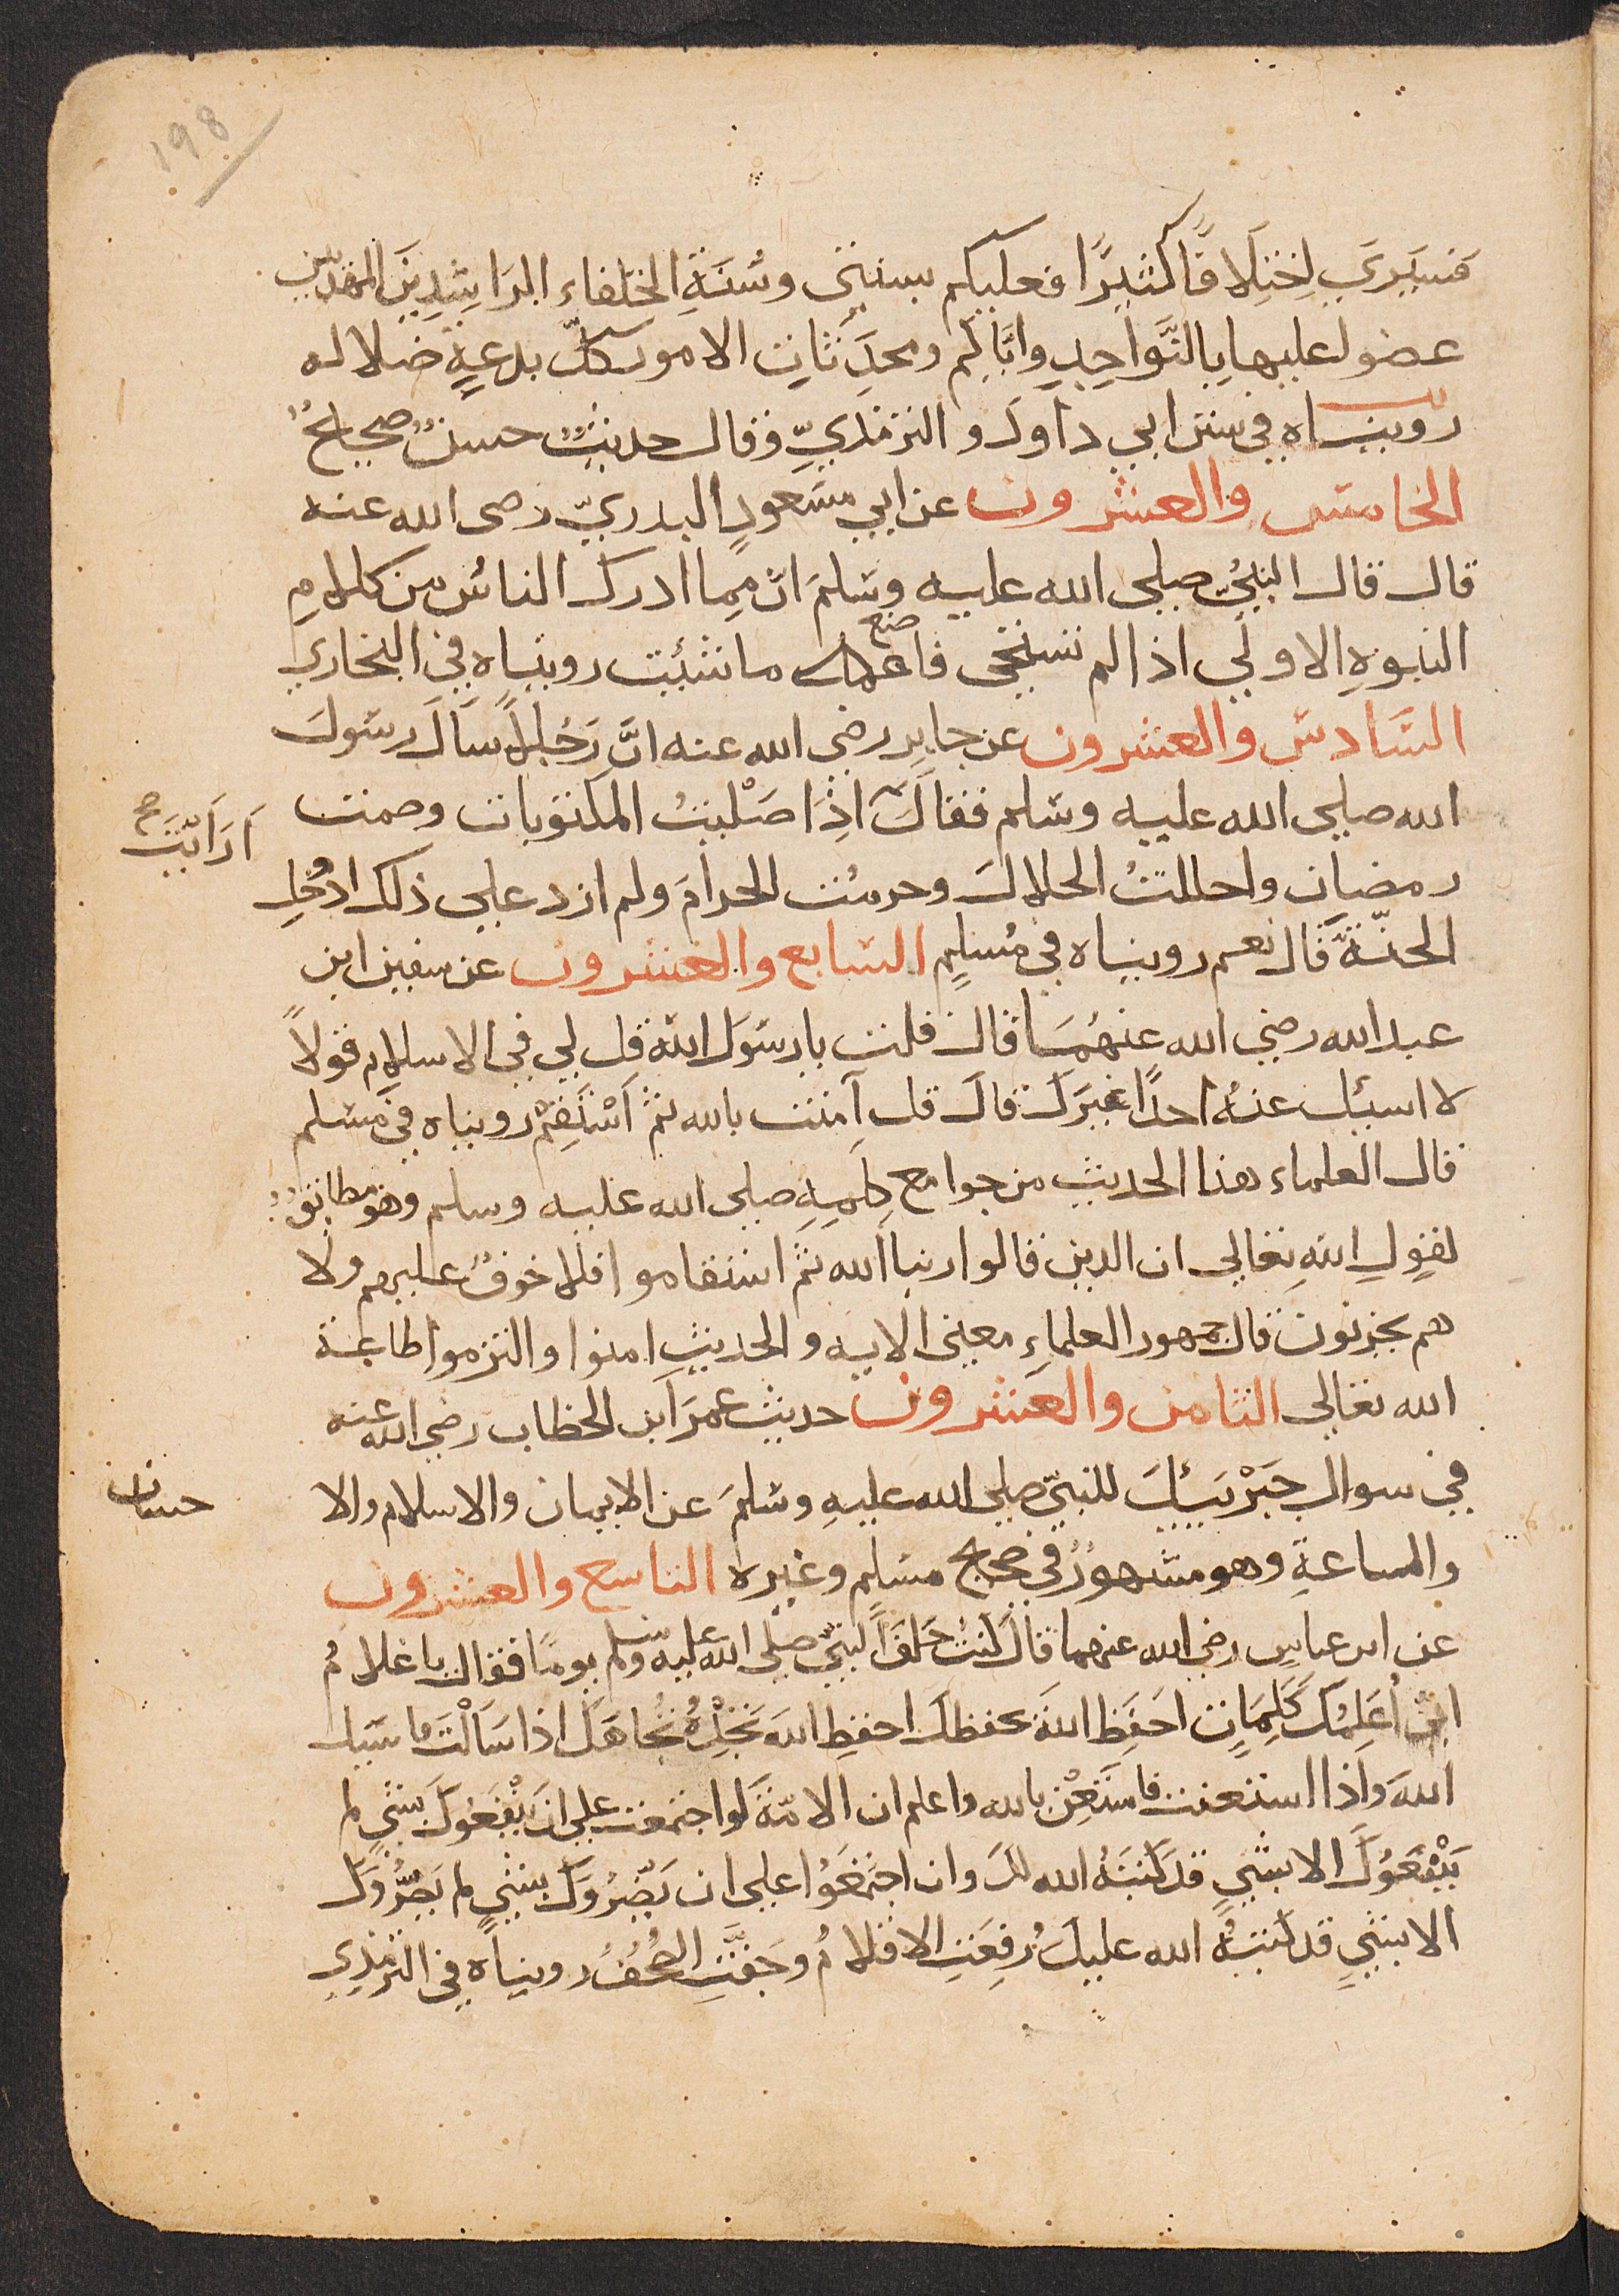 198
فسيري اختلافًا كثيرًا فعليكم بسنتي وسُنَةِ الخلفاء الرَاشِدِينَ المهديّين
عضوا عليها بالنَّواجِدِ وايّاكم ومحدَثاتِ الامور كلّ بدعةٍ ضلاله
رويناه في سنن ابي داود والترمذيِّ وقال حديثٌ حسنٌ صحيحٌ
الخامس والعشرون عن ابي مسعودٍ البدريّ رضى الله عنه
قال قال النبيُّ صلى الله عليه وسلمَ انّ مما ادرك الناسُ من كلامِ
النبوةِ الاولي اذا لم تستحي فاعمل ما شئت رويناه في البخاري
صنع
السَادس والعشرون عن جابِر رضي الله عنه انَّ رَجُلًا سَالَ رسولَ
الله صلى الله عليه وسلم فقالَ اذَا صَلْيتُ المكتوبات وصمت
اَرَاَيْتَ صح
رمضان واحللتُ الحلالَ وحرمُت الحرامَ ولم ازد علي ذلك ادْخُل
الجنّةَ قال نعم رويناه في مُسْلمٍ السَابع والعشرون عن سفين ابن
عبد الله رضي الله عنهُمَا قال قلت يا رسَولَ الله قل لي في الاسلامِ قولاً
لا اسئل عنهُ احدًا غيرَكَ قالَ قل آمنت بالله ثمّ اسْتَقِمْ رويناه في مسلم
قال العلماء هذا الحديث من جوامع كلَمِهِ صلى الله عليه وسلم وهو مطابقٌ
لقولِ اللهِ تعالي ان الدين قالوا ربنا الله ثمَّ استقاموا فلا خوفٌ عليهم ولا
هم يحزنون قال جمهور العلماءِ معني الايه والحديث امنوا والتزموا طاعة
الله تعالي الثامن والعشرون حديث عمرَ ابن الخطاب رضي الله عنه
في سوال جَبْرَيَئلَ للنبيّ صلي الله عليهِ وسلمَ عن الايمان والاسلام والا
حسان
والساعةِ وهو مشهورٌ في صحيح مسلم وغيره التاسع والعشرون
عن ابن عباسٍ رضي الله عنهما قالَ كنتُ خلفَ النبيّ صلى الله عليه وسلم يومًا فقال يا غلامُ
انيّ اُعَلِمُكَ كَلِمَاتٍ احفَظِ اللهَ يحفظكَ احفظِ اللهَ تَجْدهُ تُجاهَكَ اذا سَالْتَ فاسئل
اللهَ واذا استعنت فاستَعِنْ بالله واعلم ان الامّةَ لَو اجتمعت علي انْ يَنْفَعُوكَ بشيٍ لم
يَنْفَعَوُكَ الا بشيٍ قد كَتبَهُ الله لكَ وان اجتَمَعَوُا علي ان يَضّرُوَكَ بشيٍ لم يَضُرُّوكَ
الا بشيٍ قد كتبهُ الله عليكَ رُفِعَتِ الاقلامُ وجَفَّتِ الصُحُفُ رويناه في الترمذي